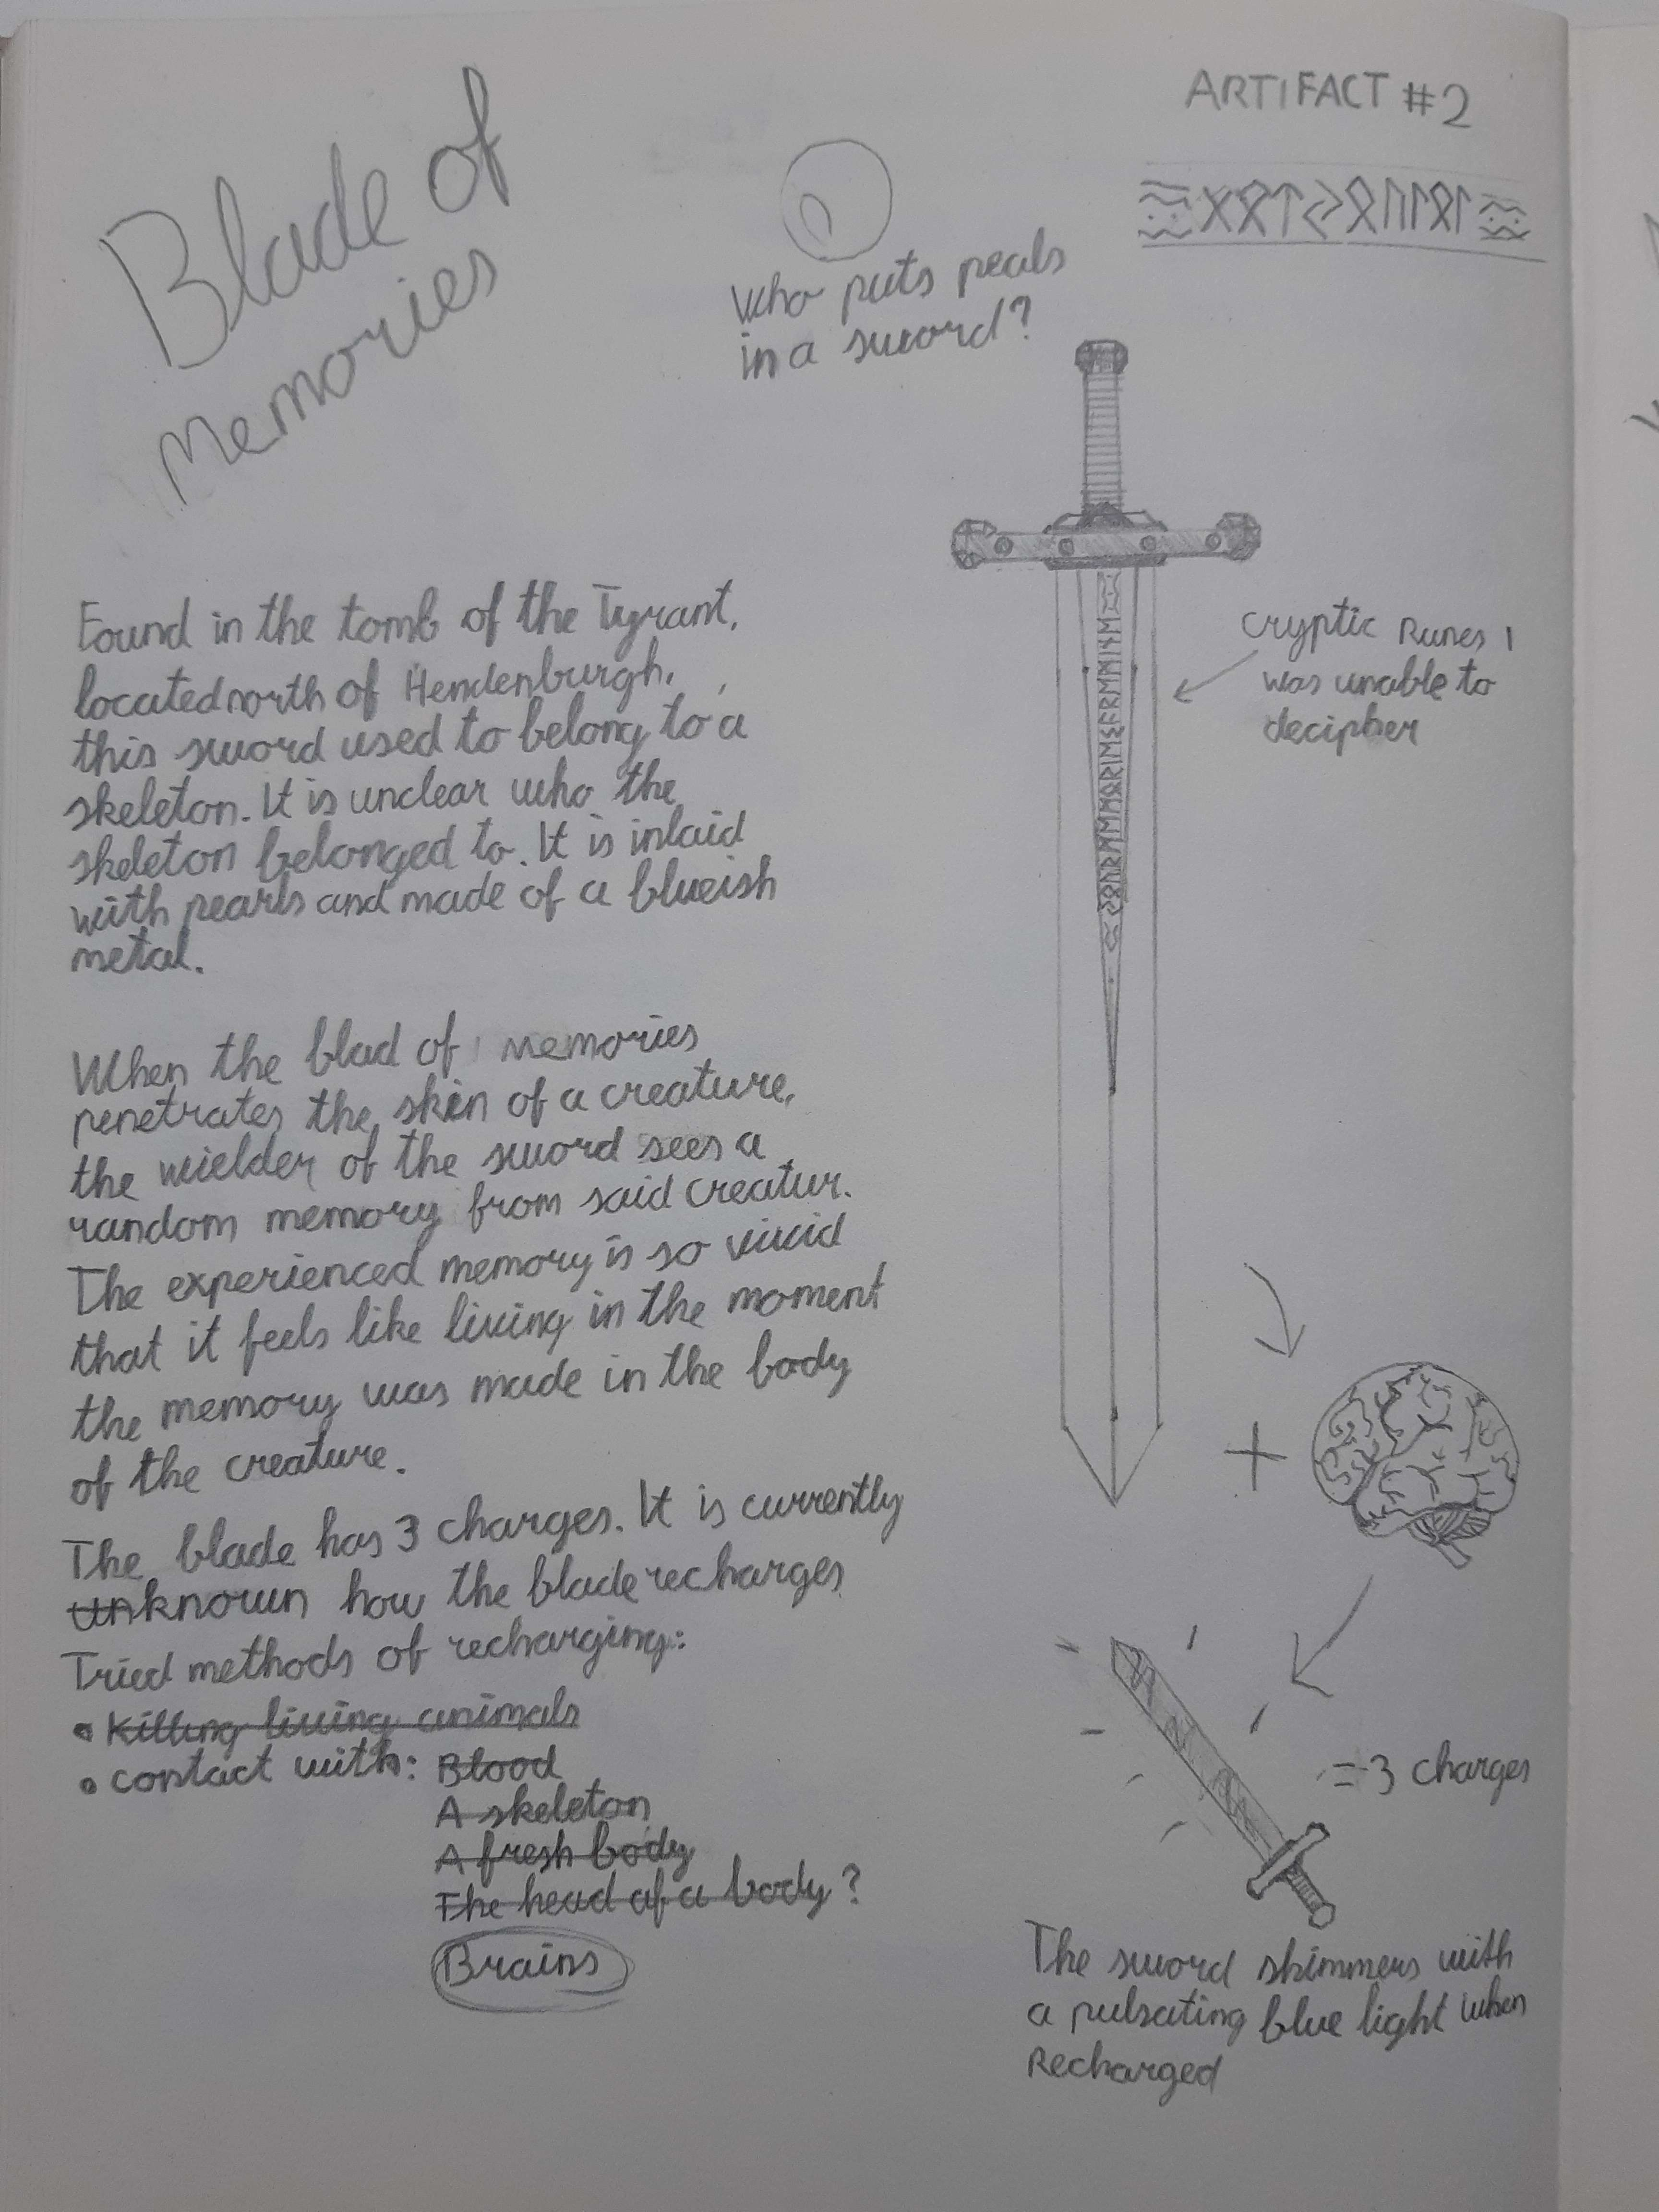 Blade of
Memories
ARTIFACT #2
ᚷᛟᛏᛃᛟᚢᛚᛟᛚ
Who puts pearls
in a sword?
Found in the tomb of the Tyrant,
located north of Hendenburgh,
this sword used to belong to a
skeleton. It is unclear who the
skeleton belonged to. It is inlaid
with pearls and made of a blueish
metal.
When the blad of Memories
penetrates the skin of a creature,
the wielder of the sword sees a
random memory from said creatur.
The experienced memory is so vivid
that it feels like living in the moment
the memory was made in the body
of the creature.
The blade has 3 charges. It is currently
unknown how the blade recharges
Tried methods of recharging:
• Killing living animals
• contact with: Blood
A skeleton
A fresh body
The head of a body?
Brains
ᛃᛟᚢᚱᛗᛖᛗᛟᚱᛁᛖᛊᚨᚱᛖᛗᛁᚾᛖ
Cryptic Runes I
was unable to
decipher
+
= 3 charges
The sword shimmers with
a pulsating blue light when
Recharged